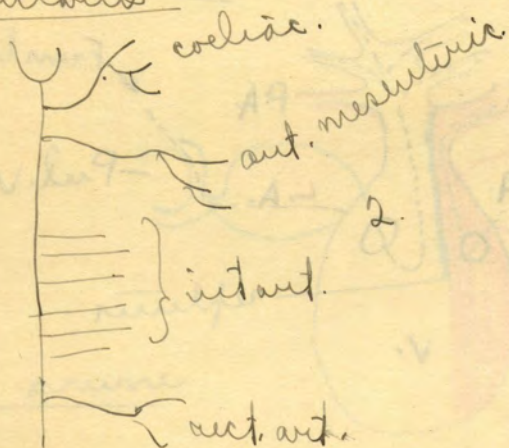 coeliac.
ant. mesenteric.
2.
int art.
rect. art.